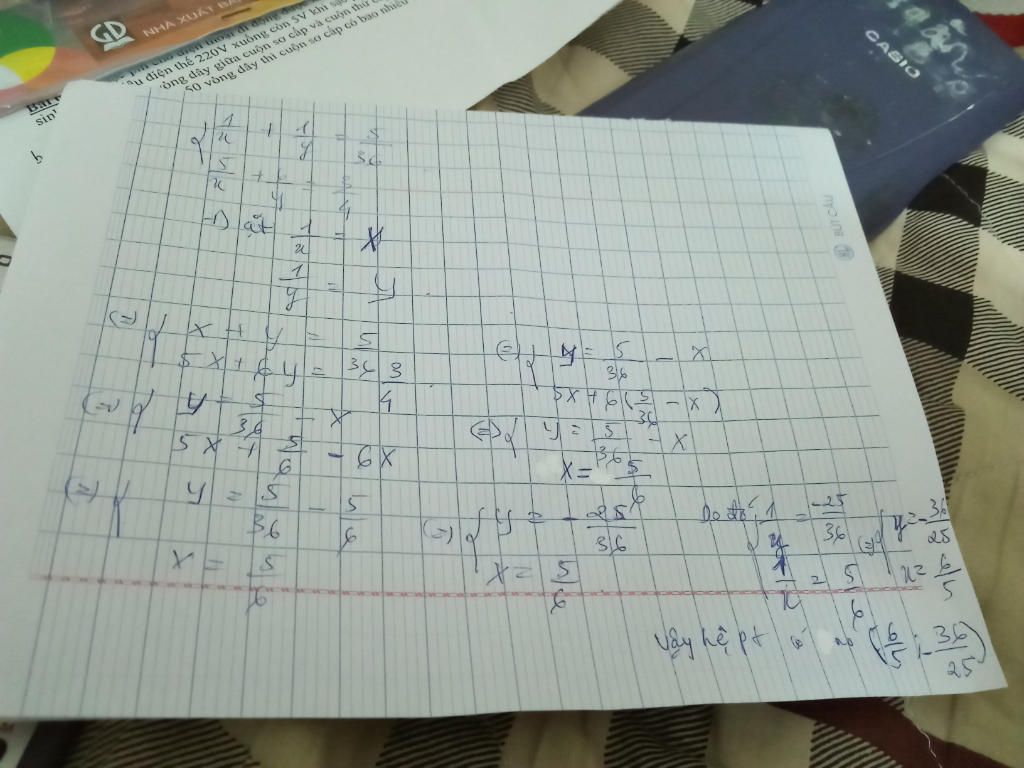 NHÀ XUẤT BẢ
điện thế 220V xuống còn 5V khi sạc
vòng dây giữa cuộn sơ cấp và cuộn thứ c
50 vòng dây thì cuộn sơ cấp có bao nhiêu
CASIO
BÚT CÂU
{ 1/x + 1/y = 5/36
5/x + 6/y = 3/4
Đặt 1/x = X
1/y = y
(=) { X + y = 5/36
5X + 6y = 3/4
(=) { y = 5/36 - X
5X + 6(5/36 - X)
(=) { y = 5/36 - X
5X + 5/6 - 6X
(=) { y = 5/36 - X
X = 5/6
(=) { y = 5/36 - 5/6
X = 5/6
(=) { y = -25/36
X = 5/6
Do đó { 1/y = -25/36
1/x = 5/6
(=) { y = -36/25
x = 6/5
Vậy hệ pt có no (6/5 ; -36/25)